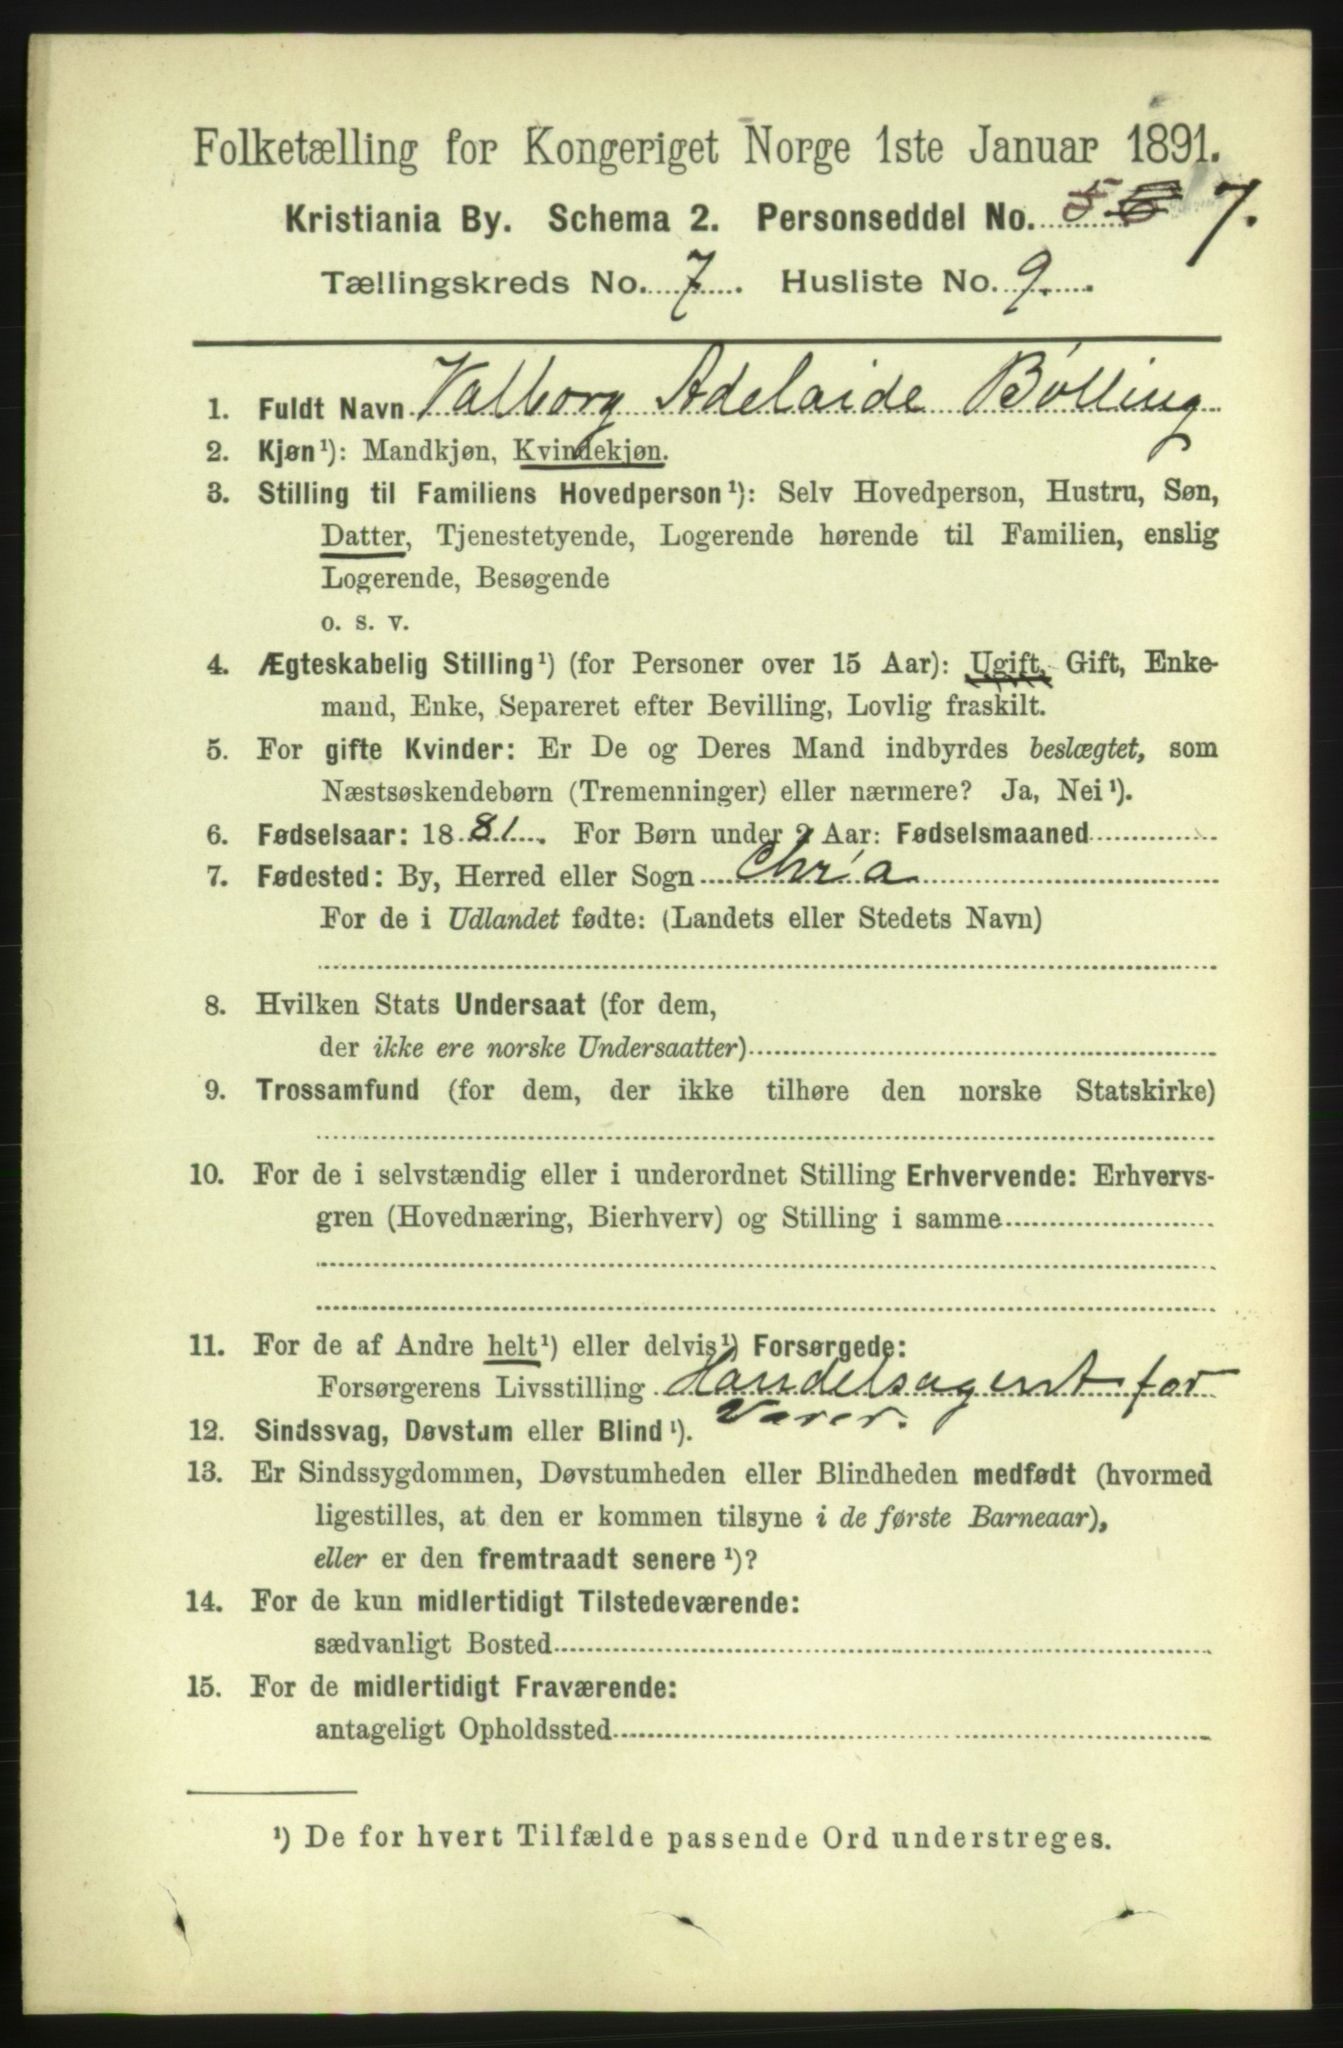 Folketælling for Kongeriget Norge 1ste Januar 1891.
Kristiania By. Schema 2. Personseddel No. 5 6 7.
Tællingskreds No. 7. Husliste No. 9.
1. Fuldt Navn Valborg Adelaide Bølling
2. Kjøn¹): Mandkjøn, Kvindekjøn.
3. Stilling til Familiens Hovedperson¹): Selv Hovedperson, Hustru, Søn,
Datter, Tjenestetyende, Logerende hørende til Familien, enslig
Logerende, Besøgende
o. s. v.
4. Ægteskabelig Stilling¹) (for Personer over 15 Aar): Ugift, Gift, Enke-
mand, Enke, Separeret efter Bevilling, Lovlig fraskilt.
5. For gifte Kvinder: Er De og Deres Mand indbyrdes beslægtet, som
Næstsøskendebørn (Tremenninger) eller nærmere? Ja, Nei¹).
6. Fødselsaar: 1881. For Børn under 2 Aar: Fødselsmaaned
7. Fødested: By, Herred eller Sogn Chr'a
For de i Udlandet fødte: (Landets eller Stedets Navn)
8. Hvilken Stats Undersaat (for dem,
der ikke ere norske Undersaatter)
9. Trossamfund (for dem, der ikke tilhøre den norske Statskirke)
10. For de i selvstændig eller i underordnet Stilling Erhvervende: Erhvervs-
gren (Hovednæring, Bierhverv) og Stilling i samme
11. For de af Andre helt¹) eller delvis¹) Forsørgede:
Forsørgerens Livsstilling Handelsagent for
Varer.
12. Sindssvag, Døvstum eller Blind¹).
13. Er Sindssygdommen, Døvstumheden eller Blindheden medfødt (hvormed
ligestilles, at den er kommen tilsyne i de første Barneaar),
eller er den fremtraadt senere¹)?
14. For de kun midlertidigt Tilstedeværende:
sædvanligt Bosted
15. For de midlertidigt Fraværende:
antageligt Opholdssted
¹) De for hvert Tilfælde passende Ord understreges.